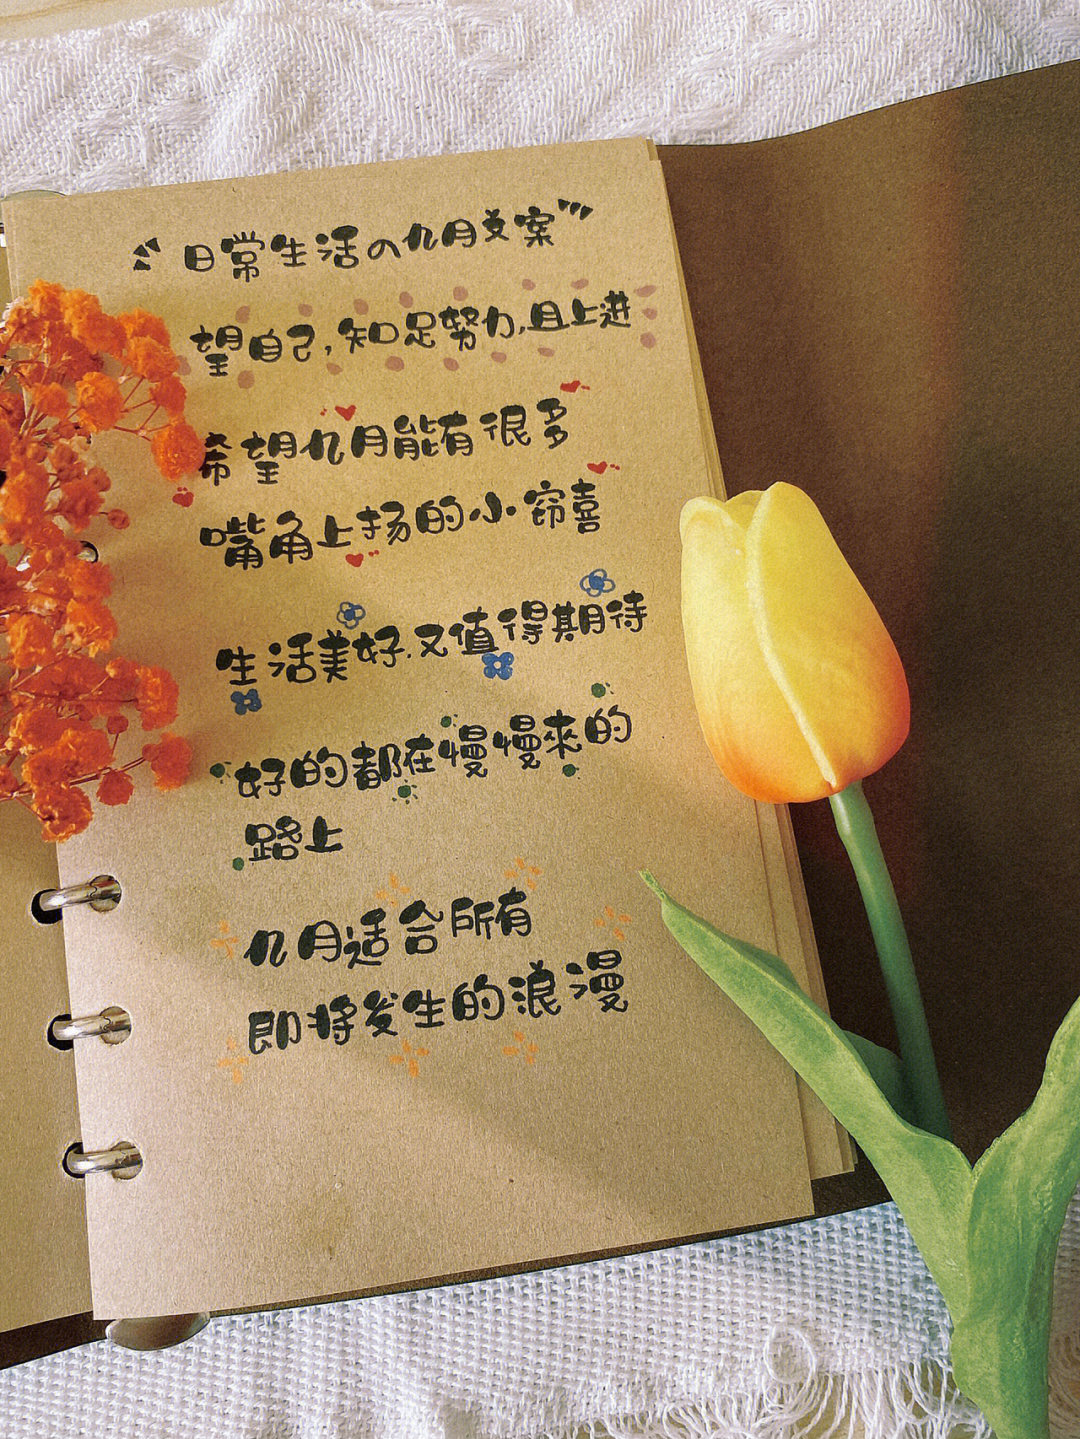 日常生活の九月文案
望自己,知足努力,且上进
希望九月能有很多
嘴角上扬的小窃喜
生活美好.又值得期待
好的都在慢慢來的
路上
九月适合所有
即将发生的浪漫